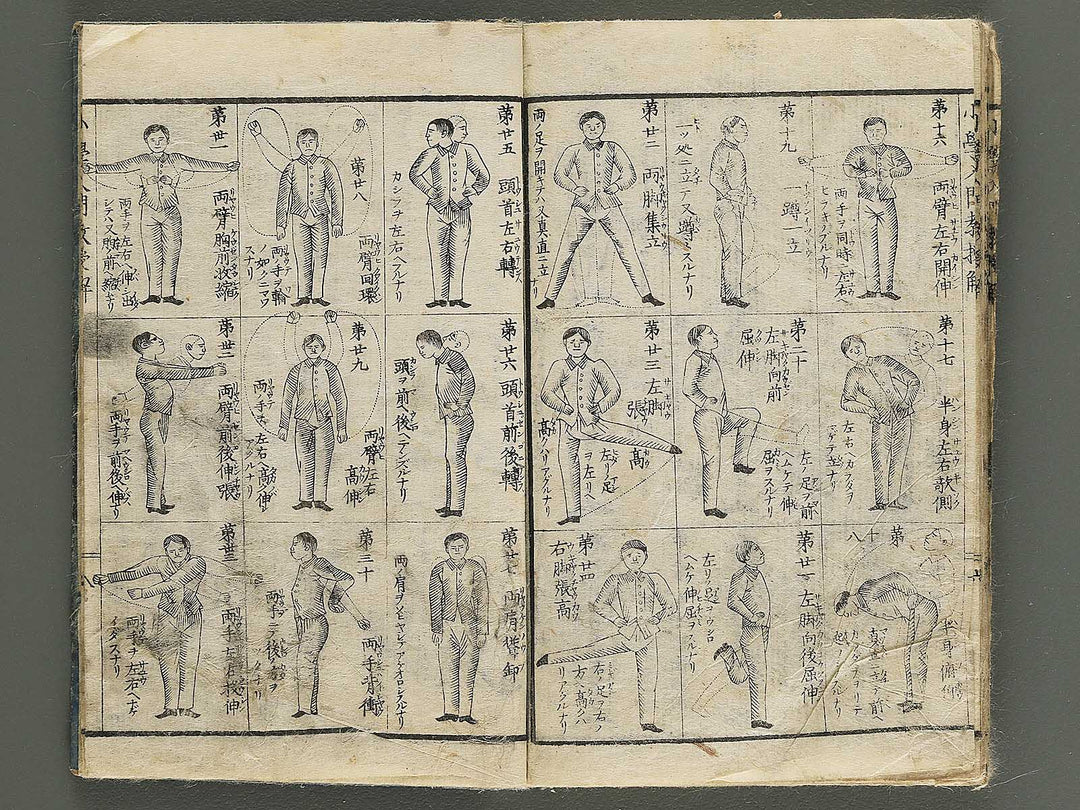 第十六 両臂左右開伸
両手ヲ同時ニ左右ヘ
ヒラキアグルナリ
第十七 半身左右欹側
左右ヘカラダヲ
第十八 半身俯仰
第十九 一蹲一立
一ツ処ニ立テ又蹲ミスルナリ
第二十 左脚向前屈伸
左ノ足ヲ前ヘムケテ伸屈ヲスルナリ
第廿一 左脚向後屈伸
左リノ足ヲウシロヘムケ伸屈ヲスルナリ
第廿二 両脚集立
両ノ足ヲ開キテハ又真直ニ立ナリ
第廿三 左脚張高
左リノ足ヲ左リヘ高クハリアグルナリ
第廿四 右脚張高
右ノ足ヲ右ノ方ヘ高クハリアグルナリ
第廿五 頭首左右轉
カシラヲ左右ヘフルナリ
第廿六 頭首前後轉
頭ヲ前ヘ後ヘテンズルナリ
第廿七 両肩
両肩ヲ
第廿八 両臂回環
両手ヲ輪ノ如クニマワスナリ
第廿九 両臂左右高伸
両手ヲ左右ヘ高ク伸アグルナリ
第三十 両手背衝
両手ニテ後ノ方ヲ
第丗一 両臂胸前収縮
両手ヲ左右ヘ伸シ出シテ又胸前ヘ縮ルナリ
第丗二 両臂前後伸張
両手ヲ前後ヘ伸ナリ
第丗三 両手左右投伸
両手ヲ左右ヘナゲイダスナリ